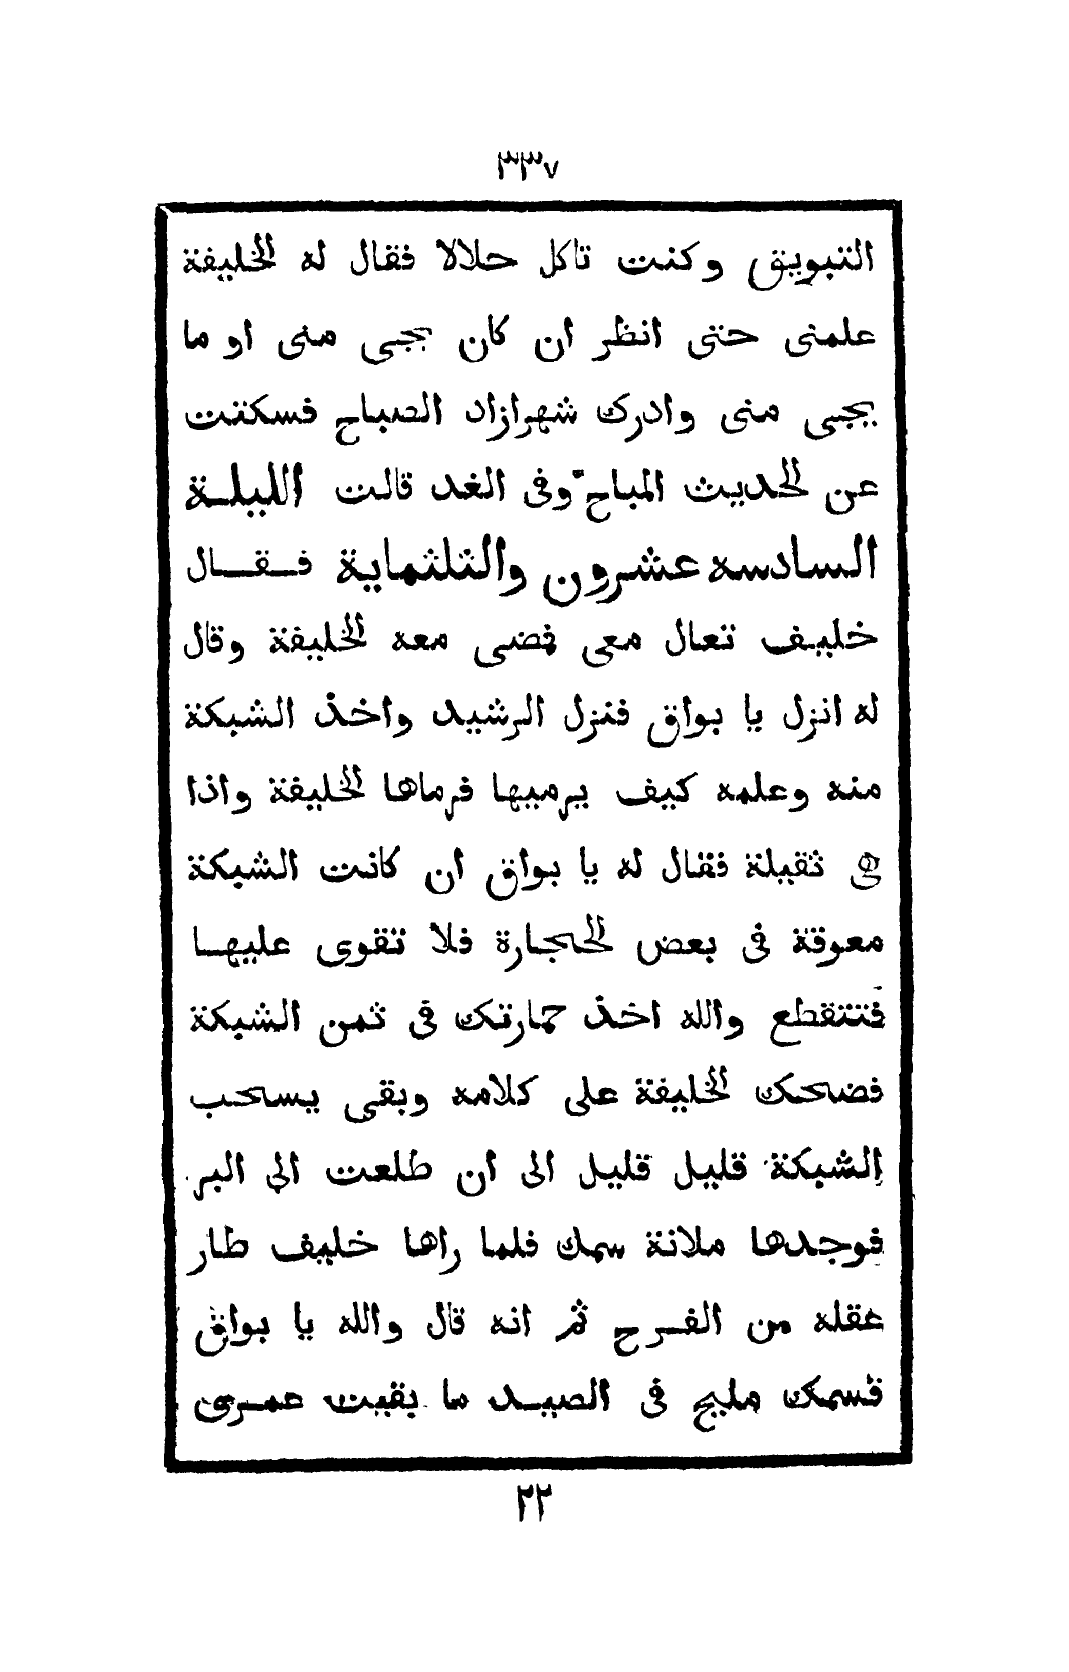 ٣٣٧
التبويق وكنت تاكل حلالا فقال له الخليفة
علمنى حتى انظر ان كان يجى منى او ما
يجى منى وادرك شهرازاد الصباح فسكتت
عن الحديث المباح وفى الغد قالت الليلة
السادسه عشرون والثلثماية فقال
خليف تعال معى فمضى معه الخليفة وقال
له انزل يا بواق فنزل الرشيد واخذ الشبكة
منه وعلمه كيف يرميها فرماها الخليفة واذا
هى ثقيلة فقال له يا بواق ان كانت الشبكة
معوقة فى بعض الحجارة فلا تقوى عليها
فتتقطع والله اخذ حمارتك فى ثمن الشبكة
فضحك الخليفة على كلامه وبقى يسحب
الشبكة قليل قليل الى ان طلعت الى البر
فوجدها ملانة سمك فلما راها خليف طار
عقله من الفرح ثم انه قال والله يا بواق
قسمك مليح فى الصيد ما بقيت عمرى
٢٢